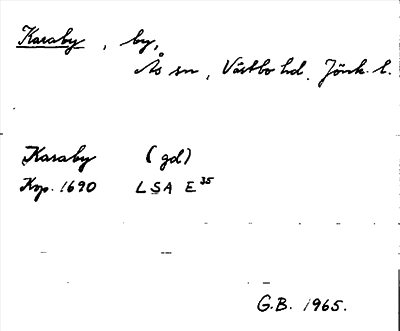 Karaby, by,
Ås sn, Västbo hd. Jönk. l.
Karaby (gd)
Krp. 1690 LSA E 35
G.B. 1965.